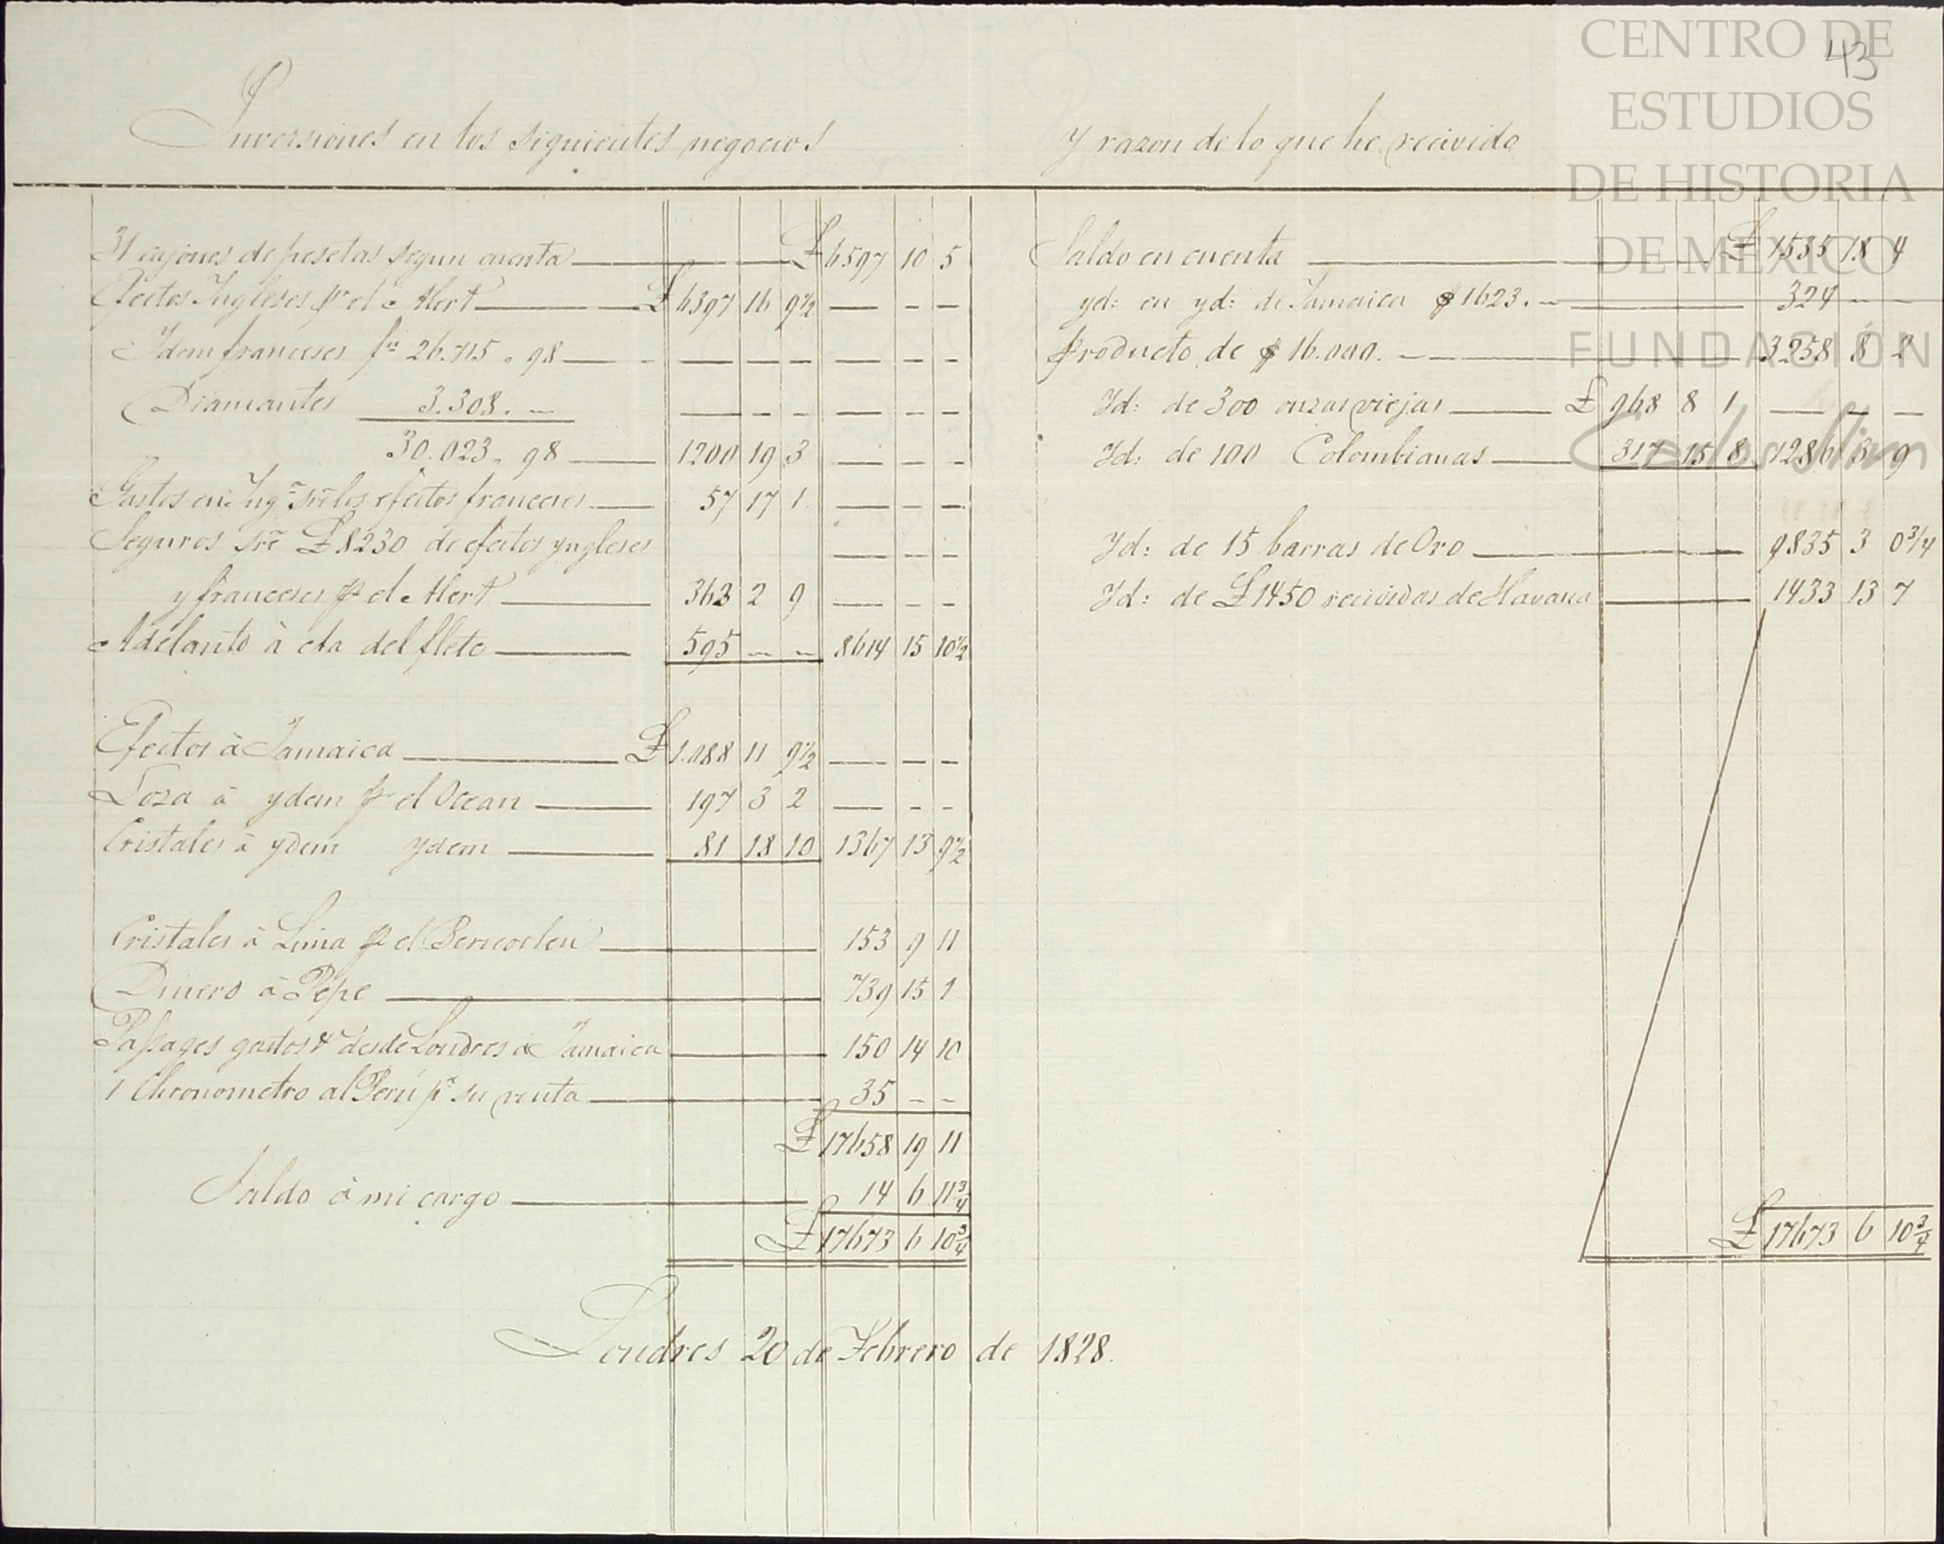 43
CENTRO DE
ESTUDIOS
DE HISTORIA
DE MEXICO
FUNDACIÓN
Carlos Slim
Inversiones en los siguientes negocios
31 cajones de pesetas segun cuenta £ 6597 10 5
Efectos Yngleses pr el Alert £ 6397 16 9 1/2
Ydem franceses fcs 26.715 " 98
Diamantes 3.308. —
30.023 " 98 1200 19 3
Gastos en Inga sre los efectos franceses 57 17 1
Seguros sre £ 8230 de efectos yngleses
y franceses pr el Alert 363 2 9
Adelanto à cta del flete 595 — — 8614 15 10 1/2
Efectos à Jamaica £ 1.088 11 9 1/2
Loza à ydem pr el Ocean 197 3 2
Cristales à ydem ydem 81 18 10 1367 13 9 1/2
Cristales à Lima pr el 153 9 11
Dinero à Pepe 739 15 1
Passages gastos & desde Londres à Jamaica 150 14 10
1 Chronometro al Perú pa su venta 35 — —
£ 17658 19 11
Saldo à mi cargo 14 6 11 3/4
£ 17673 6 10 3/4
y razon de lo que he recivido
Saldo en cuenta £ 1535 18 4
yd: en yd: de Jamaica $ 1623. — 324 — —
Producto de $ 16.000. — 3258 8 2
Yd: de 300 onzas viejas £ 968 8 1
Yd: de 100 Colombianas 317 15 8 1286 3 9
Yd: de 15 barras de Oro 9835 3 0 3/4
Yd: de £ 1450 recividas de Havana 1433 13 7
£ 17673 6 10 3/4
Londres 20 de Febrero de 1828.